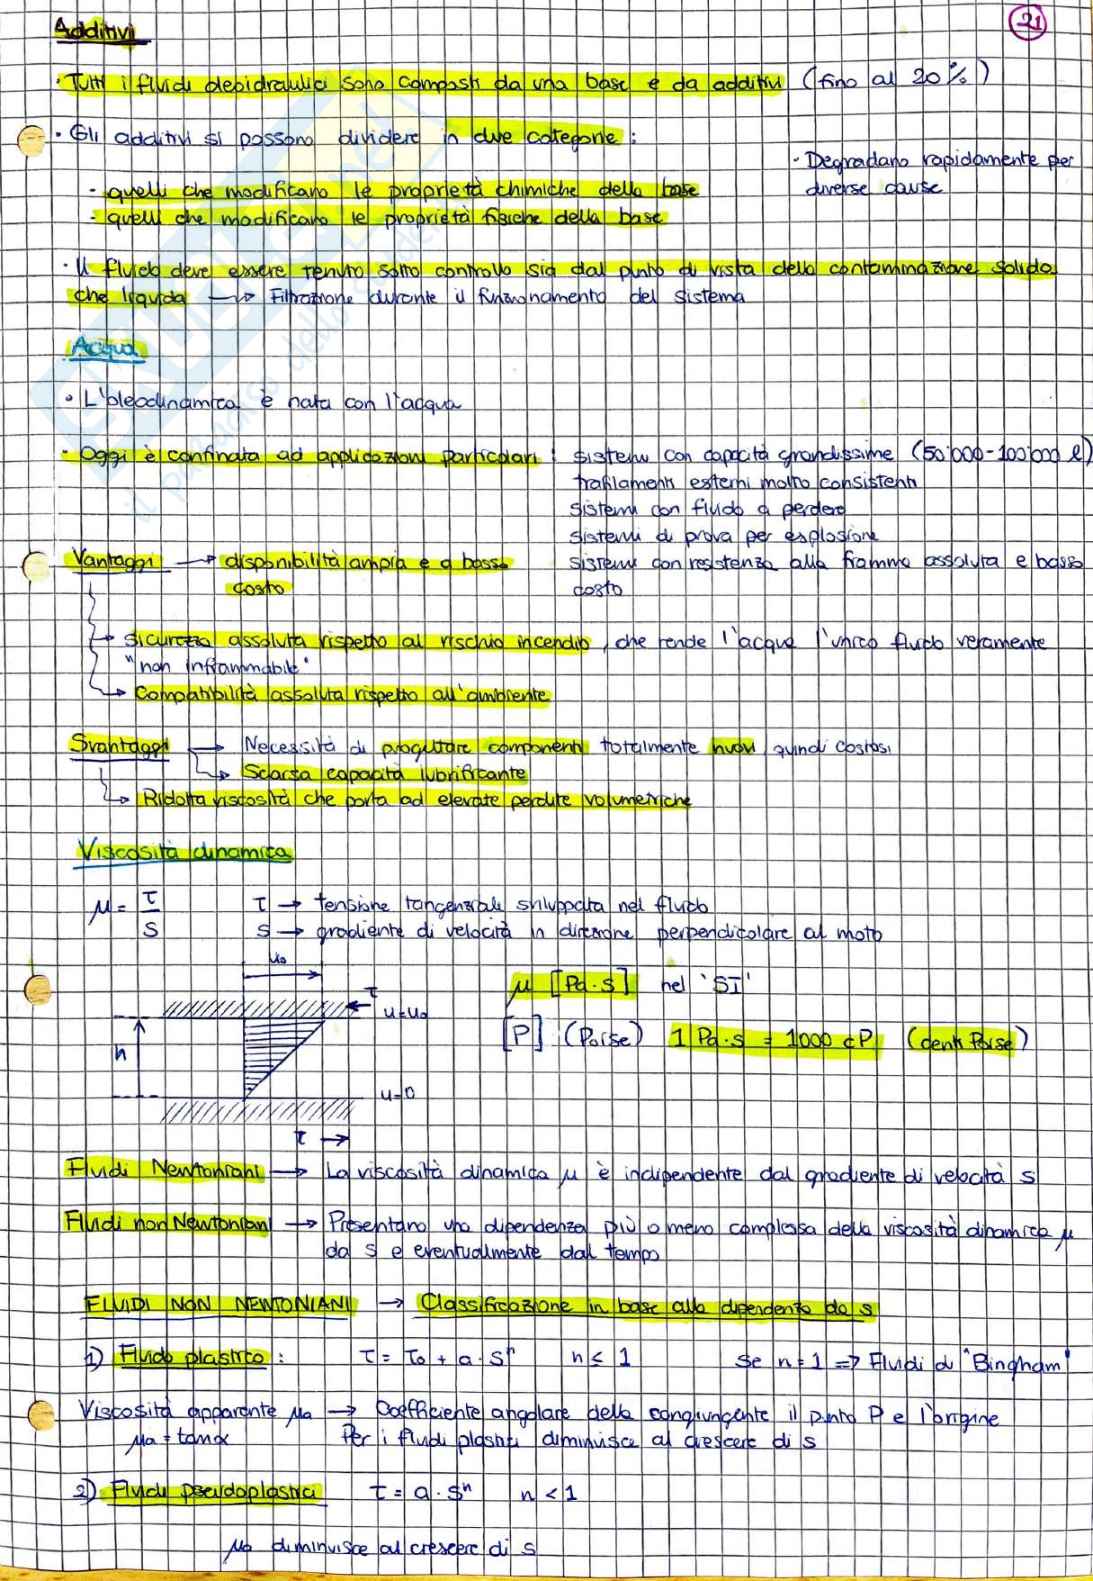 21
Additivi
· Tutti i fluidi oleoidraulici sono composti da una base e da additivi (fino al 20%)
· Gli additivi si possono dividere in due categorie:
- quelli che modificano le proprietà chimiche della base
- quelli che modificano le proprietà fisiche della base
· Degradano rapidamente per
diverse cause
· Il fluido deve essere tenuto sotto controllo sia dal punto di vista della contaminazione solida
che liquida → Filtrazione durante il funzionamento del sistema
Acqua
· L'oleodinamica è nata con l'acqua
· Oggi è confinata ad applicazioni particolari: sistemi con capacità grandissime (50'000-100'000 l)
trafilamenti esterni molto consistenti
sistemi con fluido a perdere
sistemi di prova per esplosione
sistemi con resistenza alla fiamma assoluta e basso
costo
Vantaggi → disponibilità ampia e a basso
costo
→ sicurezza assoluta rispetto al rischio incendio, che rende l'acqua l'unico fluido veramente
"non infiammabile"
→ Compatibilità assoluta rispetto all'ambiente
Svantaggi → Necessità di progettare componenti totalmente nuovi, quindi costosi
→ Scarsa capacità lubrificante
→ Ridotta viscosità che porta ad elevate perdite volumetriche
Viscosità dinamica
μ = τ/s
τ → tensione tangenziale sviluppata nel fluido
s → gradiente di velocità in direzione perpendicolare al moto
u₀
τ
u=u₀
h
u=0
τ →
μ [Pa·s] nel 'SI'
[P] (Poise) 1 Pa·s = 1000 cP (centi Poise)
Fluidi Newtoniani → La viscosità dinamica μ è indipendente dal gradiente di velocità s
Fluidi non Newtoniani → Presentano una dipendenza più o meno complessa della viscosità dinamica μ
da s e eventualmente dal tempo
FLUIDI NON NEWTONIANI → Classificazione in base alla dipendenza da s
1) Fluido plastico: τ = τ₀ + a·sⁿ n ≤ 1 Se n=1 => Fluidi di "Bingham"
Viscosità apparente μa → Coefficiente angolare della congiungente il punto P e l'origine
μa = tanα Per i fluidi plastici diminuisce al crescere di s
2) Fluidi pseudoplastici τ = a·sⁿ n < 1
μa diminuisce al crescere di s